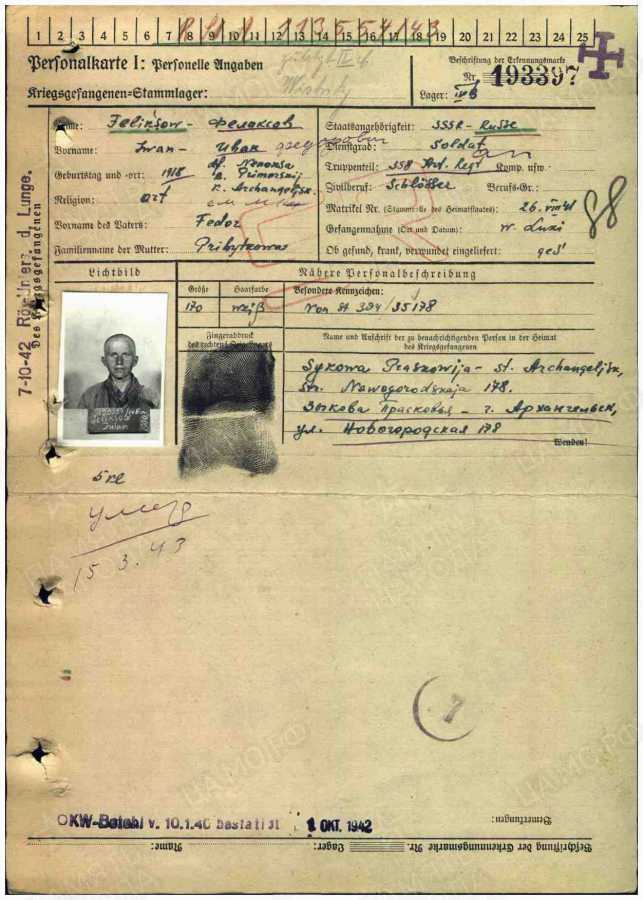 1 2 3 4 5 6 7 8 9 10 11 12 13 14 15 16 17 18 19 20 21 22 23 24 25
Personalkarte I: Personelle Angaben
Beschriftung der Erkennungsmarke
Nr. 193397
Kriegsgefangenen-Stammlager:
Lager: IVB
Name: Felikßow - Феликсов
Staatsangehörigkeit: SSSR - Russe
Vorname: Iwan - Иван
Dienstgrad: Soldat
Geburtstag und -ort: 1918
Truppenteil: 358 Art. Regt Komp. usw.
Primorskij
Zivilberuf: Schlosser Berufs-Gr.:
r. Archangeljsk
Religion: ort
Matrikel Nr. (Stammrolle des Heimatstaates): 26.VIII.41
88
Vorname des Vaters: Fedor
Gefangennahme (Ort und Datum): w. Luki
Familienname der Mutter: Pribytkowa
Ob gesund, krank, verwundet eingeliefert: ges
7-10-42 Röntgenunters. d. Lunge.
des Kriegsgefangenen
Lichtbild
Nähere Personalbeschreibung
Größe Haarfarbe Besondere Kennzeichen:
170 weiß von St 324/35178
Fingerabdruck
des rechten Zeigefingers
Name und Anschrift der zu benachrichtigenden Person in der Heimat
des Kriegsgefangenen
Sykowa Praskowija - st. Archangeljsk,
str. Nowogorodskaja 178.
Зыкова Прасковья - г. Архангельск,
ул. Новогородская 178
Wenden!
умер
15.3.43
7
OKW-Befehl v. 10.1.40 bestätigt
1 OKT. 1942
Bemerkungen:
Name: Lager: Beschriftung der Erkennungsmarke Nr.